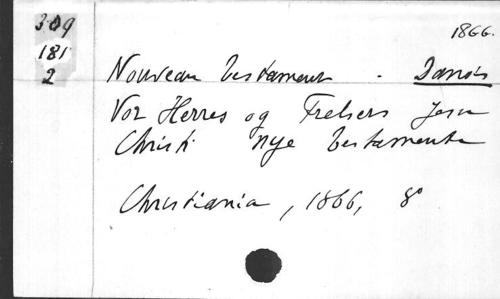 309
181
2
1866.
Nouveau Testament - Danois
Vor Herres og Frelsers Jesu
Christi nye Testamente
Christiania, 1866, 8°